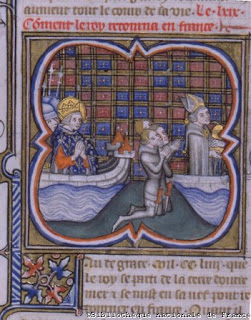 tout le cours de sa vie. Le lxix.
Coment le roy retourna en france.
An de grace mil CC liiii que
le roy se parti de la terre doutre
mer ⁊ se mist en sa nef pour
en france
Bibliothèque nationale de France